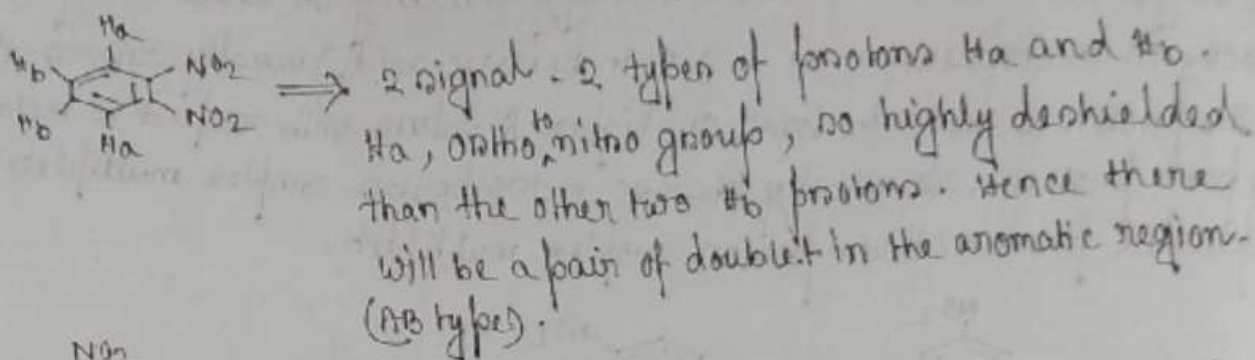 Ha
Hb NO2
Hb NO2
Ha
⟹ 2 signal. 2 types of protons Ha and Hb.
Ha, ortho to nitro group, so highly deshielded
than the other two Hb protons. Hence there
will be a pair of doublet in the aromatic region.
(AB type).
NO2